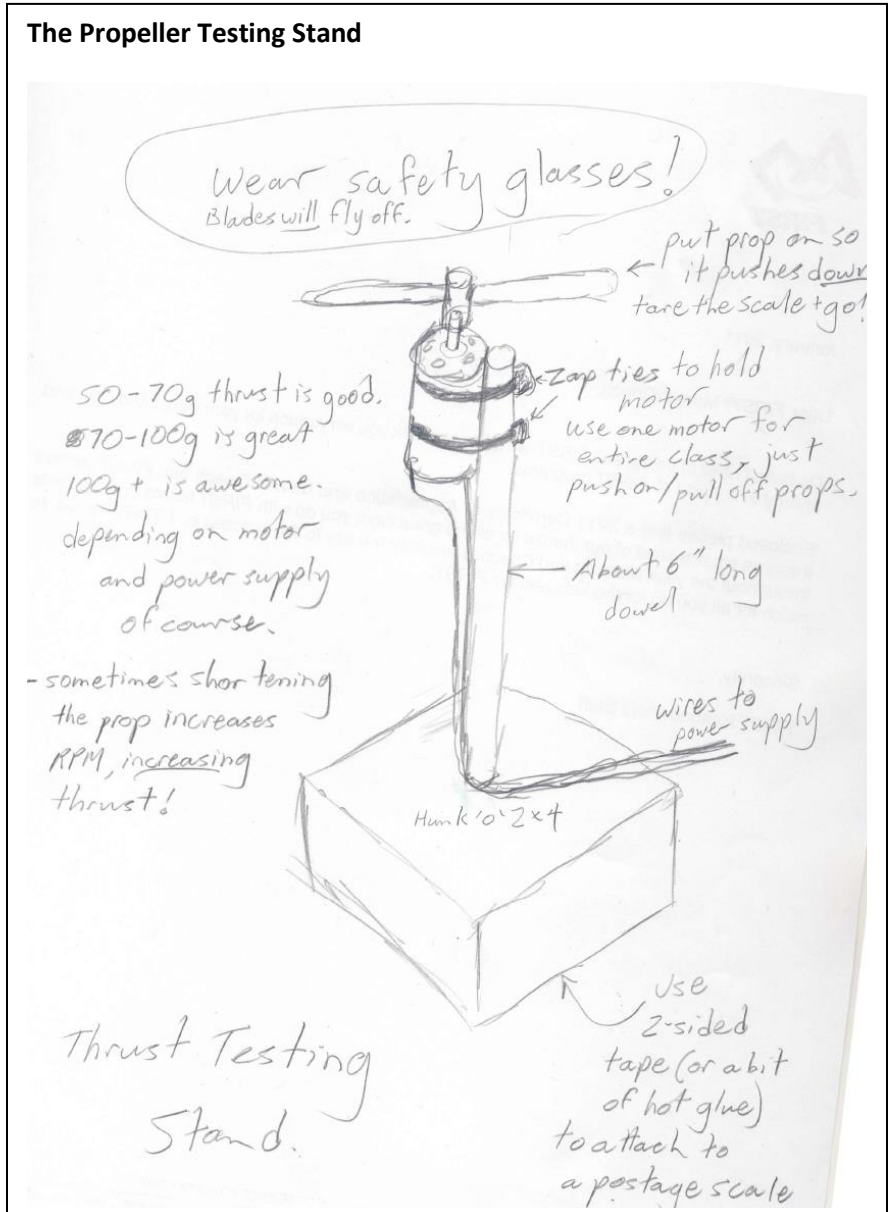 The Propeller Testing Stand
Wear safety glasses!
Blades will fly off.
put prop on so
it pushes down
tare the scale + go!
50-70g thrust is good.
70-100g is great
100g + is awesome.
depending on motor
and power supply
of course.
- sometimes shortening
the prop increases
RPM, increasing
thrust!
Zap ties to hold
motor
use one motor for
entire class, just
push on/pull off props.
About 6" long
dowel
wires to
power supply
Hunk 'o' 2x4
Use
2-sided
tape (or a bit
of hot glue)
to attach to
a postage scale
Thrust Testing
Stand.